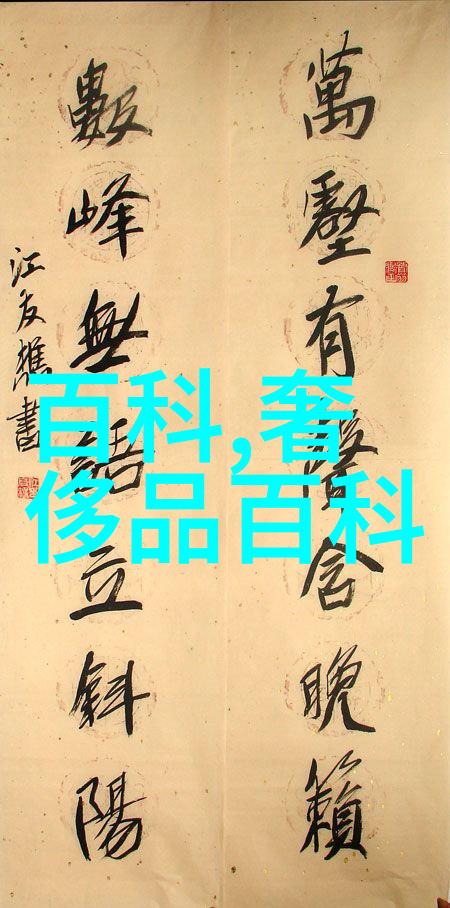 萬壑有聲含晚籟
數峰無語立斜陽
江友樵書
百科,奢
侈品百科